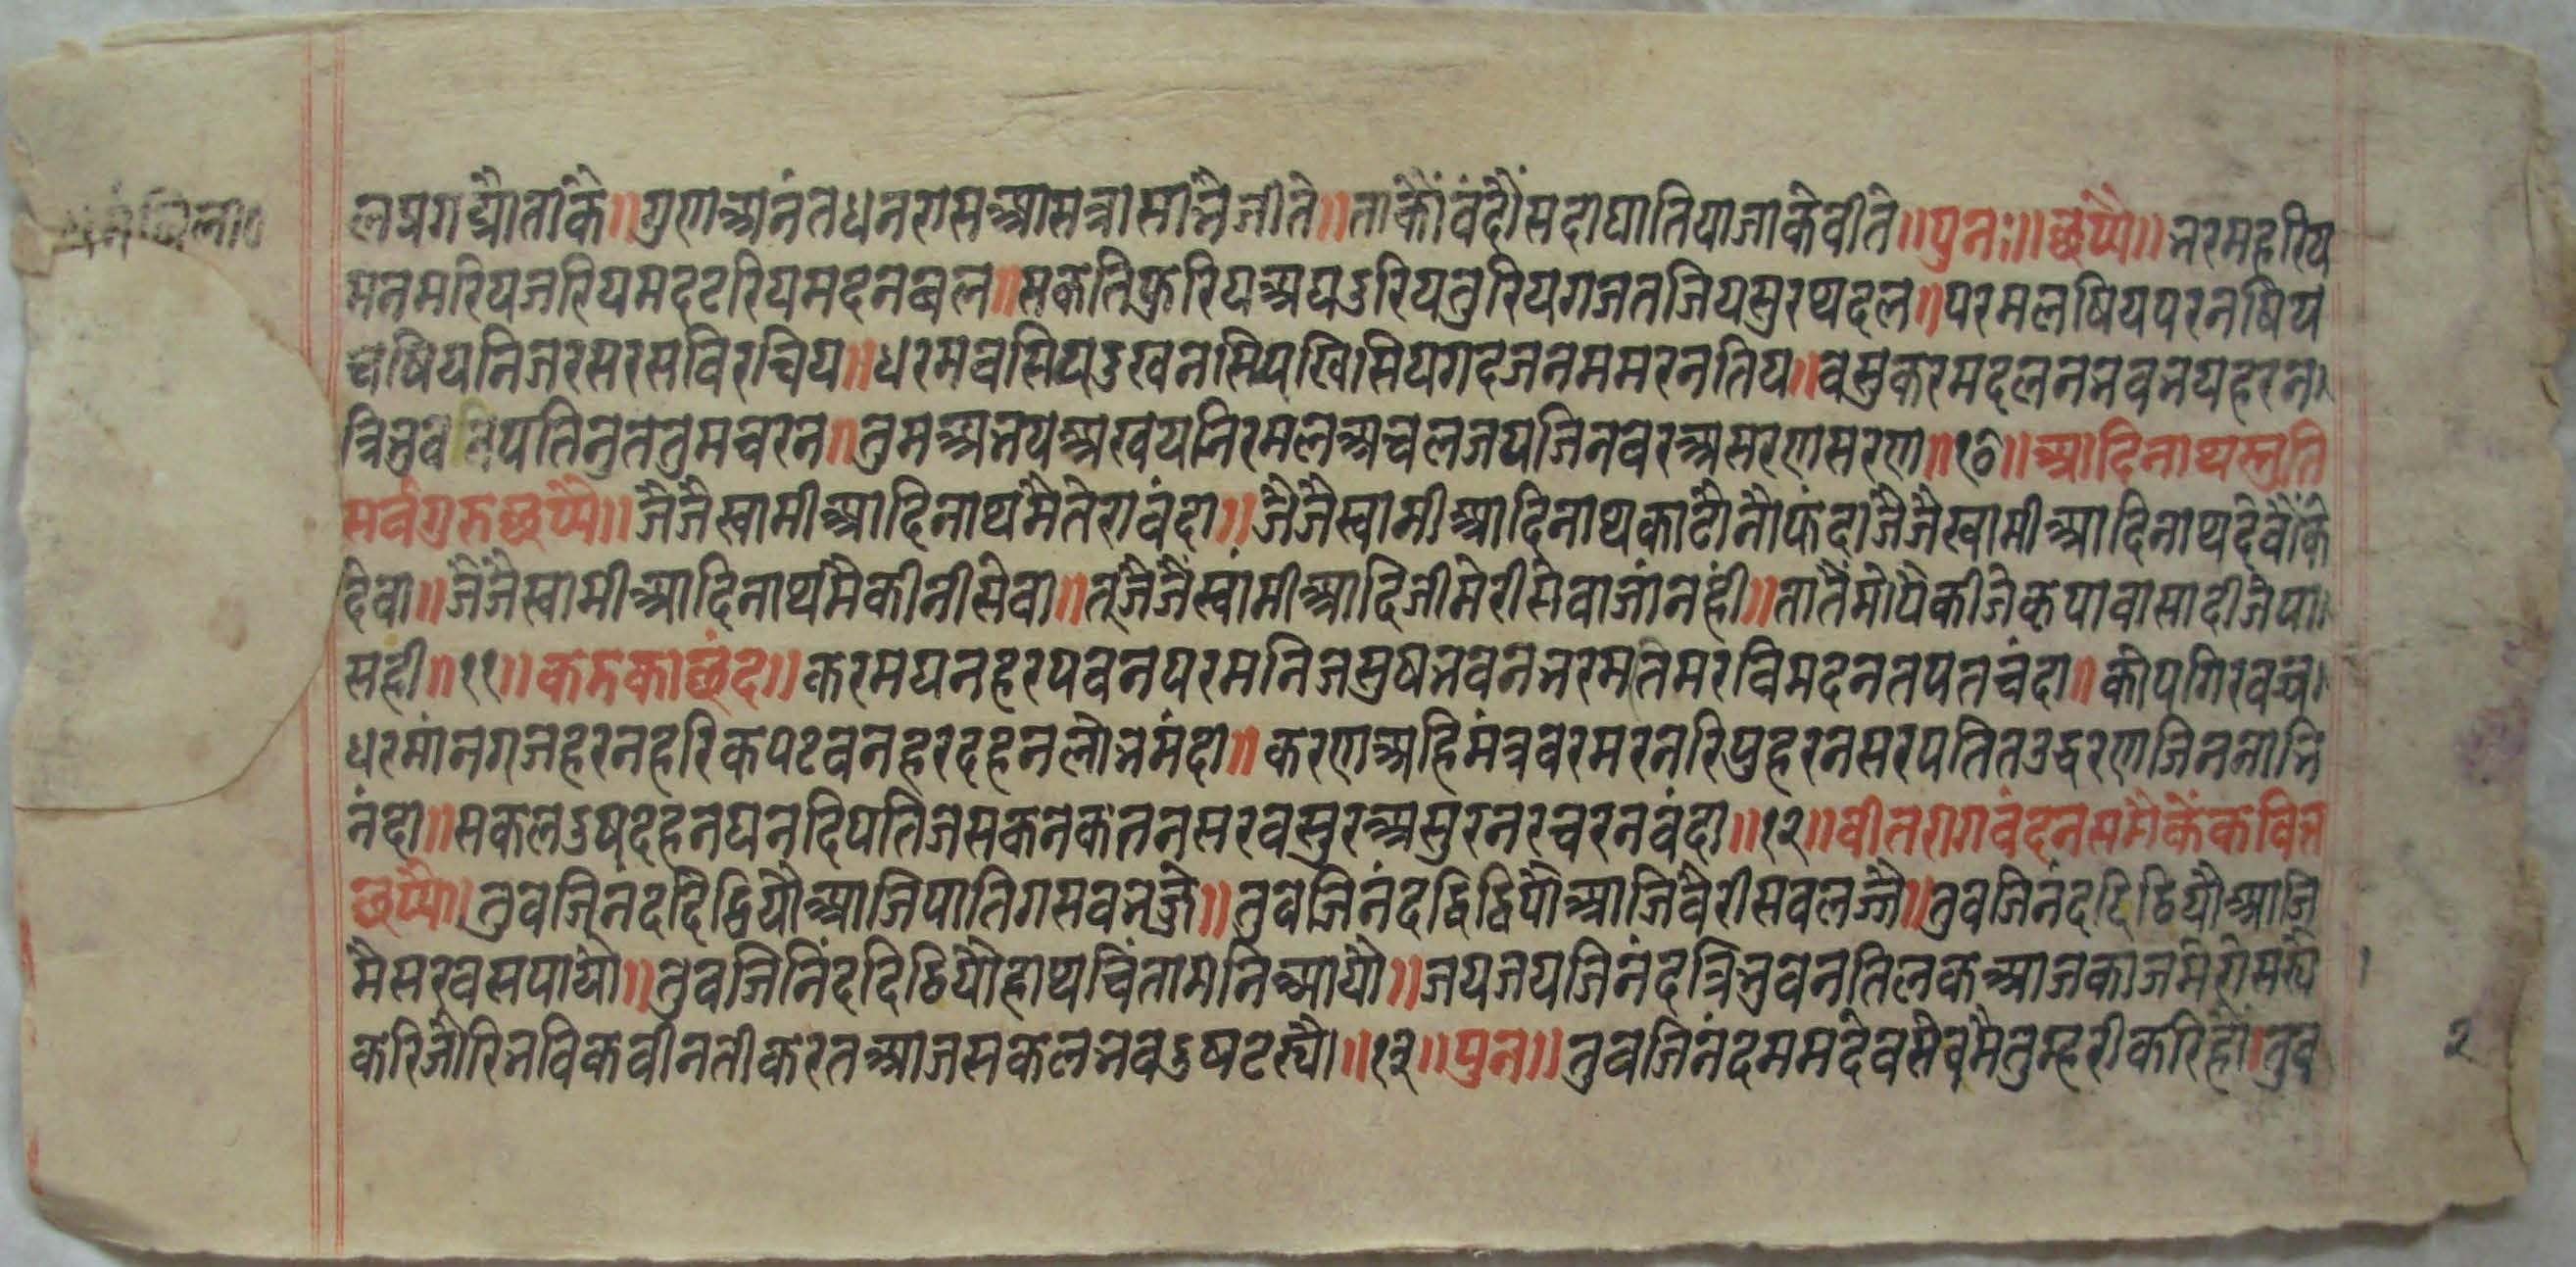 लप्रगट्यौताके॥गुणअनंतधनरासआसत्रासानैजीते॥ताकौंवंदौंसदाघातियाजाकेवीते॥पुनः॥छप्पै॥भरमहरिय
मनमरियजरियमदटरियमदनबल॥सकतिफुरियअघडुरियतुरियगजतजियसुरथदल॥परमलषियपरनषिय
चषियनिजरसरसविरचिय॥धरमवसियदुखनसियखिसियगदजनममरनतिय॥वसुकरमदलनभवभयहरन
त्रिभुवनपतिनुततुमचरन॥तुमअभयअखयनिरमलअचलजयजिनवरअसरणसरण॥१०॥आदिनाथस्तुति
सर्वगुरुछप्पै॥जैजैस्वामीआदिनाथमैतेरावंदा॥जैजैस्वामीआदिनाथकाटौनौफंदाजैजैस्वामीआदिनाथदेवौंके
देवा॥जैजैस्वामीआदिनाथमैकीनीसेवा॥तूजैजैस्वामीआदिजीमेरीसेवाजांनहीं॥तातैंमोपैकीजेकृपावासादीजैपा
सही॥११॥करुकाछंद॥करमघनहरपवनपरमनिजसुषभवनभरमतिमररविमदनतपतचंदा॥कोपगिरवज्र
धरमांनगजहरनहरिकपटवनहरदहनलोभमंदा॥करणअहिमंत्रवरमरनरिपुहरनसरपतितउद्धरणजिननाभि
नंदा॥सकलदुषदहनघनदिपतिजसकनकतनसरवसुरअसुरनरचरनवंदा॥१२॥वीतरागवंदनसमैकेंकवित
छप्पै॥तुवजिनंददिट्ठियौआजिपातिगसवभज्जे॥तुवजिनंददिट्ठियौआजिवैरीसवलज्जै॥तुवजिनंददिट्ठियौआजि
मैसरवसपायौ॥तुवजिनिंददिट्ठियौहाथचिंतामनिआयौ॥जयजयजिनंदत्रिभुवनतिलकआजकाजमेरोसर्यौ
करिजोरिभविकवीनतीकरतआजसकलभवदुषटर्यौ॥१३॥पुन॥तुवजिनंदममदेवसेवमैतुम्हरीकरिहौं॥तुव
२